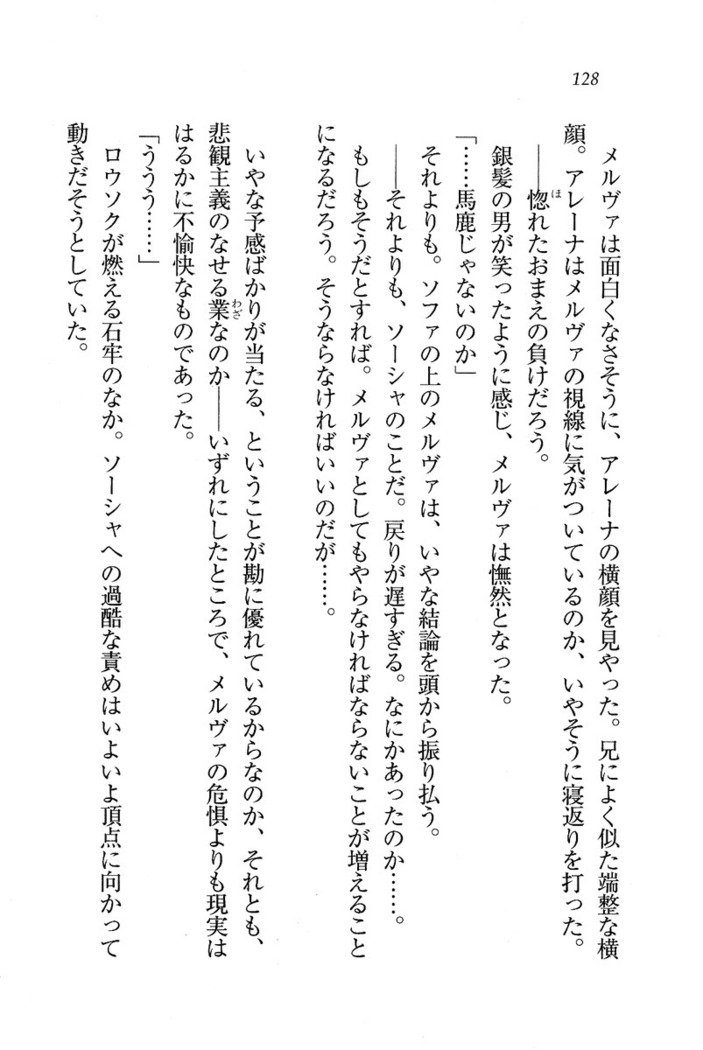 128
メルヴァは面白くなさそうに、アレーナの横顔を見やった。兄によく似た端整な横
顔。アレーナはメルヴァの視線に気がついているのか、いやそうに寝返りを打った。
――惚れたおまえの負けだろう。
ほ
銀髪の男が笑ったように感じ、メルヴァは憮然となった。
「……馬鹿じゃないのか」
それよりも。ソファの上のメルヴァは、いやな結論を頭から振り払う。
――それよりも、ソーシャのことだ。戻りが遅すぎる。なにかあったのか……。
もしもそうだとすれば。メルヴァとしてもやらなければならないことが増えること
になるだろう。そうならなければいいのだが……。
いやな予感ばかりが当たる、ということが勘に優れているからなのか、それとも、
悲観主義のなせる業なのか――いずれにしたところで、メルヴァの危惧よりも現実は
わざ
はるかに不愉快なものであった。
「ううう……」
ロウソクが燃える石牢のなか。ソーシャへの過酷な責めはいよいよ頂点に向かって
動きだそうとしていた。